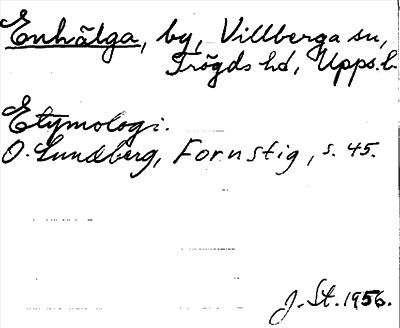 Enhälga, by, Villberga sn,
Trögds hd, Upps.l.
Etymologi.
O. Lundberg, Fornstig, s. 45.
J. St. 1956.